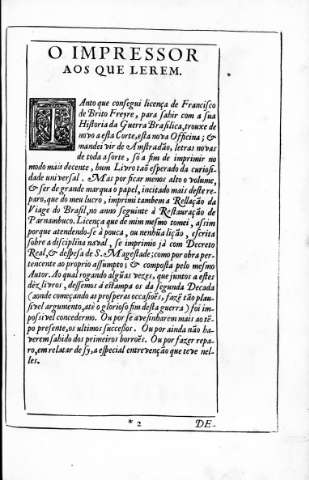 O IMPRESSOR
AOS QUE LEREM.
TAnto que consegui licença de Francisco
de Brito Freyre, para sahir com a sua
Historia da Guerra Brasilica, trouxe de
novo a esta Corte, esta nova Officina; &
mandei vir de Amstradão, letras novas
de toda a sorte, só a fim de imprimir no
modo mais decente, hum Livro taõ esperado da curiosi-
dade universal. Mas por ficar menos alto o volume,
& ser de grande marqua o papel, incitado mais deste re-
paro, que do meu lucro, imprimi tambem a Rellação da
Viage do Brasil, no anno seguinte à Restauração de
Parnambuco. Licença que de mim mesmo tomei, assim
porque atendendo-se à pouca, ou nenhũa lição, escrita
sobre a disciplina naval, se imprimio já com Decreto
Real, & despesa de S. Magestade; como por obra per-
tencente ao proprio assumpto; & composta pelo mesmo
Autor. Ao qual rogando algũas vezes, que juntos a estes
dèz livros, dessemos à estampa os da segunda Decada
(aonde começando as prosperas occasioẽs, fazẽ tão plau-
sivel argumento, atè o glorioso fim desta guerra) foi im-
possivel concedermo. Ou por se avesinharem mais ao tẽ-
po presente, os ultimos successos. Ou por ainda não ha-
verem sahido dos primeiros borroẽs. Ou por fazer repa-
ro, em relatar de sy, a especial entrevenção que teve nel-
les.
* 2 DE-